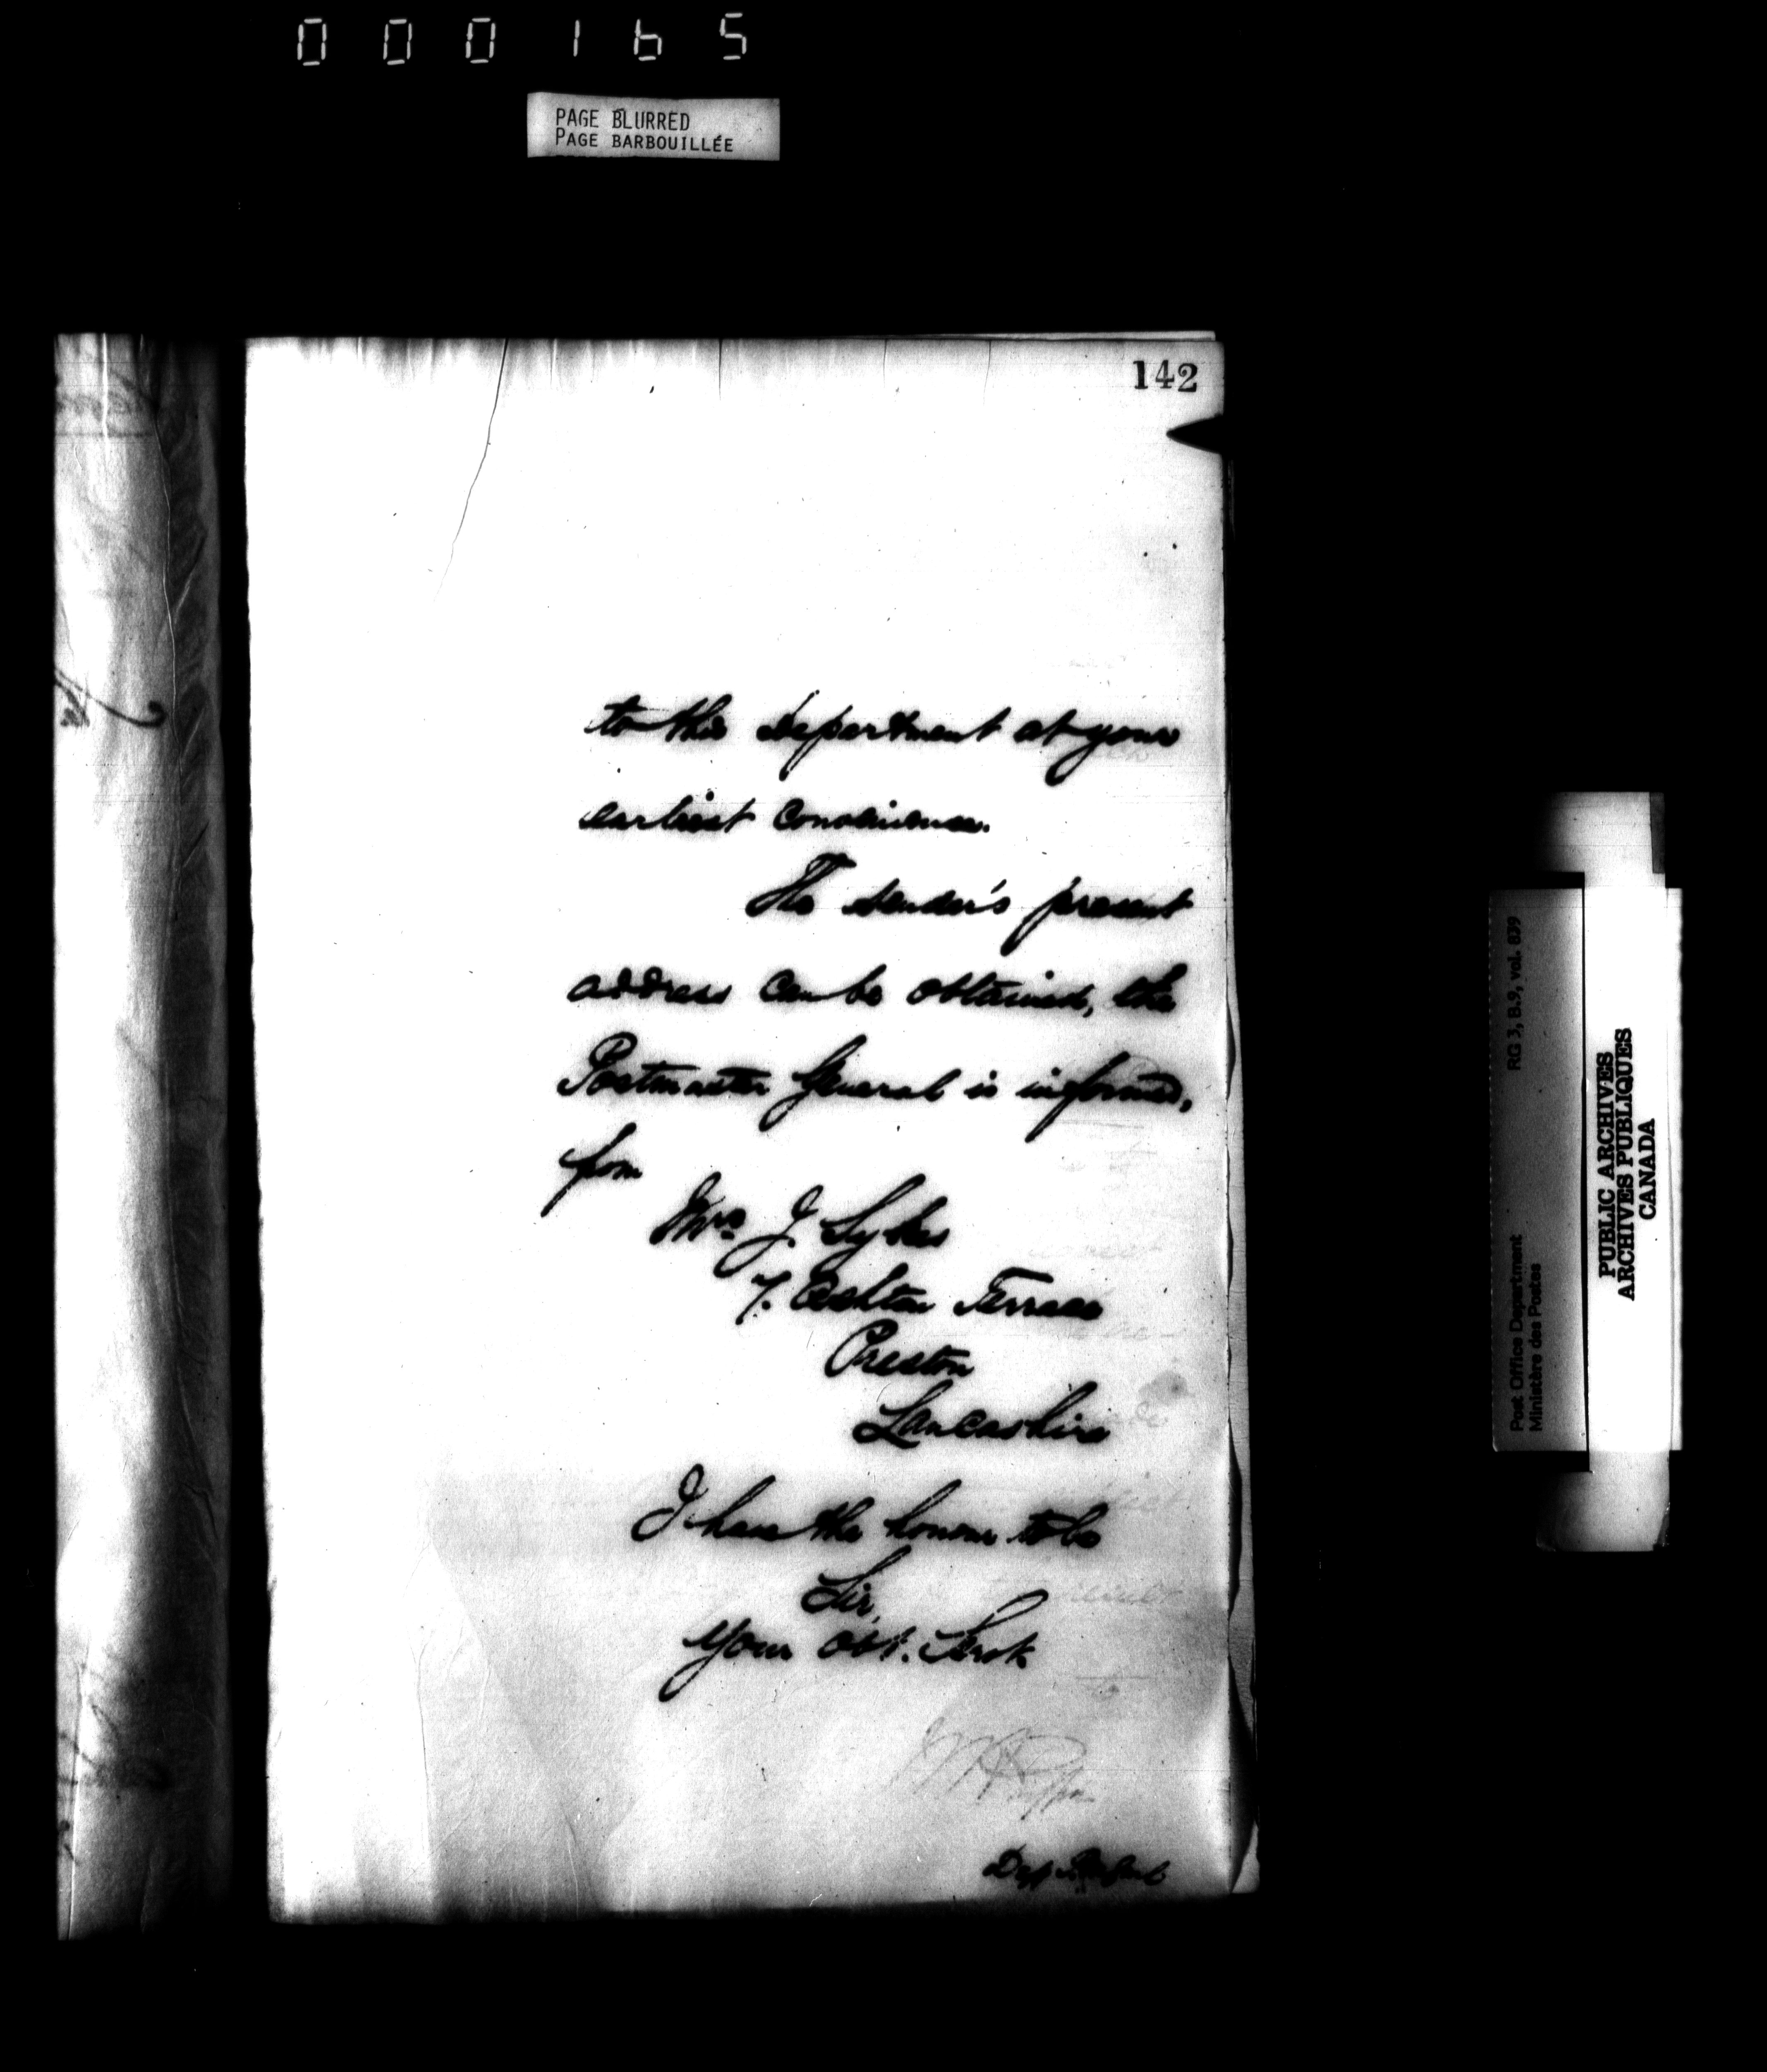 000165
PAGE BLURRED
PAGE BARBOUILLÉE
142
to this department at your
earliest convenience.
The sender's present
address can be obtained, the
Postmaster General is informed,
from
Mrs. J. Sykes
7. Ashton Terrace
Preston
Lancashire
I have the honour to be
Sir,
Your Obt. Servt.
Post Office Department
Ministère des Postes
RG 3, B.9, vol. 839
PUBLIC ARCHIVES
ARCHIVES PUBLIQUES
CANADA